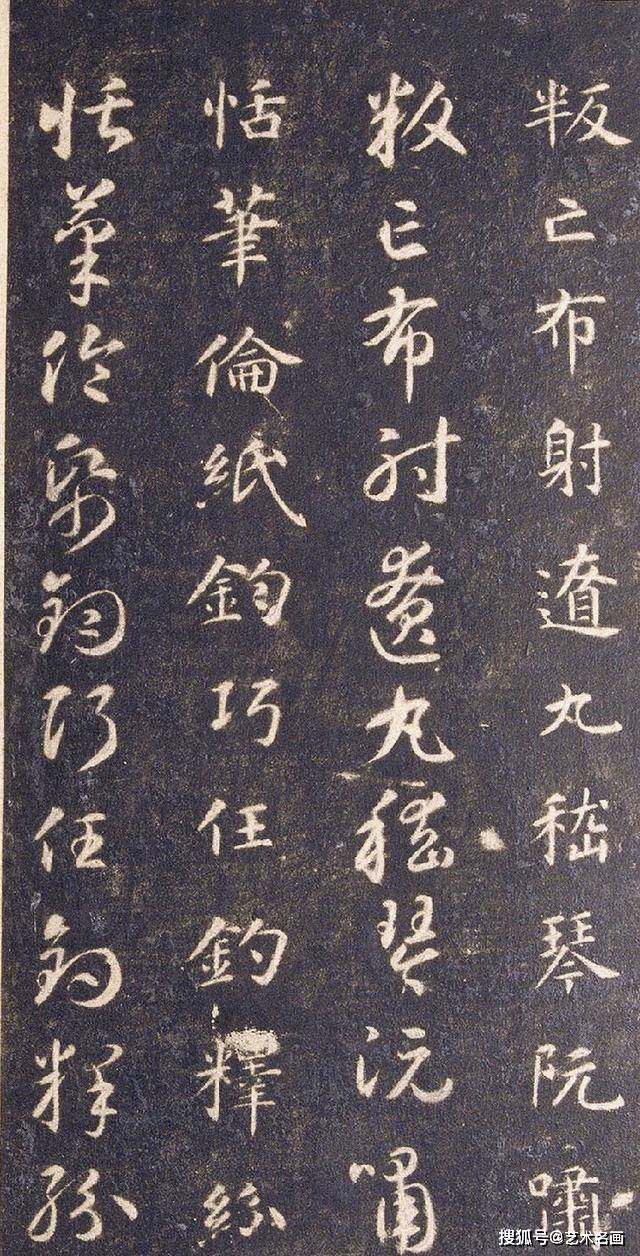 叛亡布射遼丸嵇琴阮嘯
叛亡布射遼丸嵇琴阮嘯
恬筆倫紙鈞巧任釣釋紛
恬筆倫紙鈞巧任釣釋紛
搜狐号@艺术名画